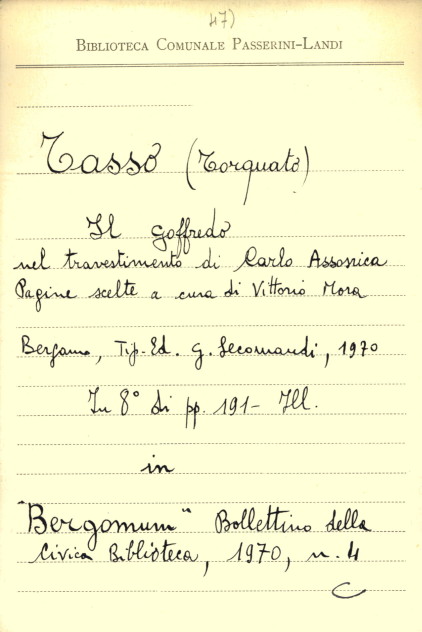 47)
BIBLIOTECA COMUNALE PASSERINI-LANDI
Tasso (Torquato)
Il Goffredo
nel travestimento di Carlo Assonica
Pagine scelte a cura di Vittorio Mora
Bergamo, Tip. Ed. G. Secomandi, 1970
In 8° di pp. 191 - Ill.
in
"Bergomum" Bollettino della
Civica Biblioteca, 1970, n. 4
C